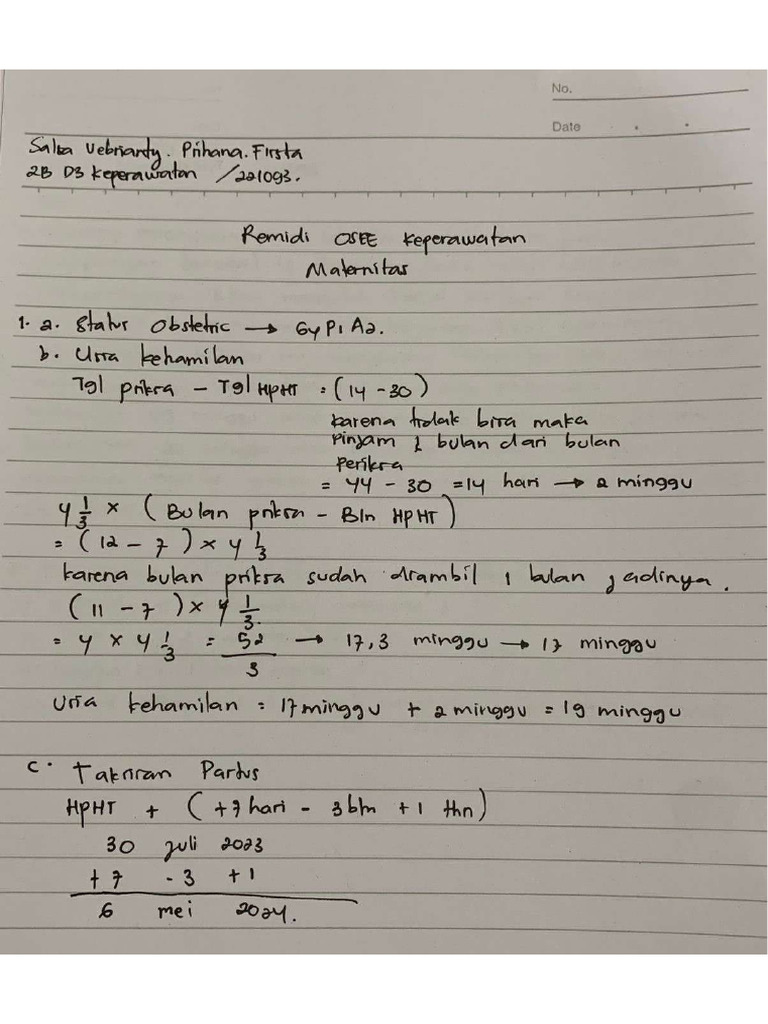 No.
Date
Salsa Vebrianty. Prihana. Firsta
2B D3 Keperawatan /221093.
Remidi OSEE Keperawatan
Maternitas
1. a. Status Obstetric → G4 P1 A2.
b. Usia kehamilan
Tgl priksa - Tgl HPHT = (14 - 30)
karena tidak bisa maka
pinjam 1 bulan dari bulan
periksa
= 44 - 30 = 14 hari → 2 minggu
4 1/3 × (Bulan priksa - Bln HPHT)
= (12 - 7) × 4 1/3
karena bulan priksa sudah diambil 1 bulan jadinya.
(11 - 7) × 4 1/3.
= 4 × 4 1/3 = 52/3 → 17,3 minggu → 17 minggu
Usia kehamilan = 17 minggu + 2 minggu = 19 minggu
c. Taksiran Partus
HPHT + (+7 hari - 3 bln + 1 thn)
30 juli 2023
+7 -3 +1
6 mei 2024.